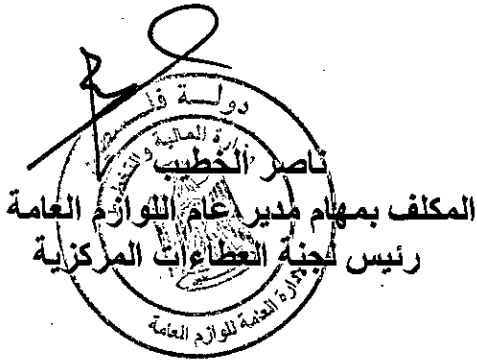 دولة فلسطين
وزارة المالية والتخطيط
ناصر الخطيب
المكلف بمهام مدير عام اللوازم العامة
رئيس لجنة العطاءات المركزية
الإدارة العامة للوازم العامة